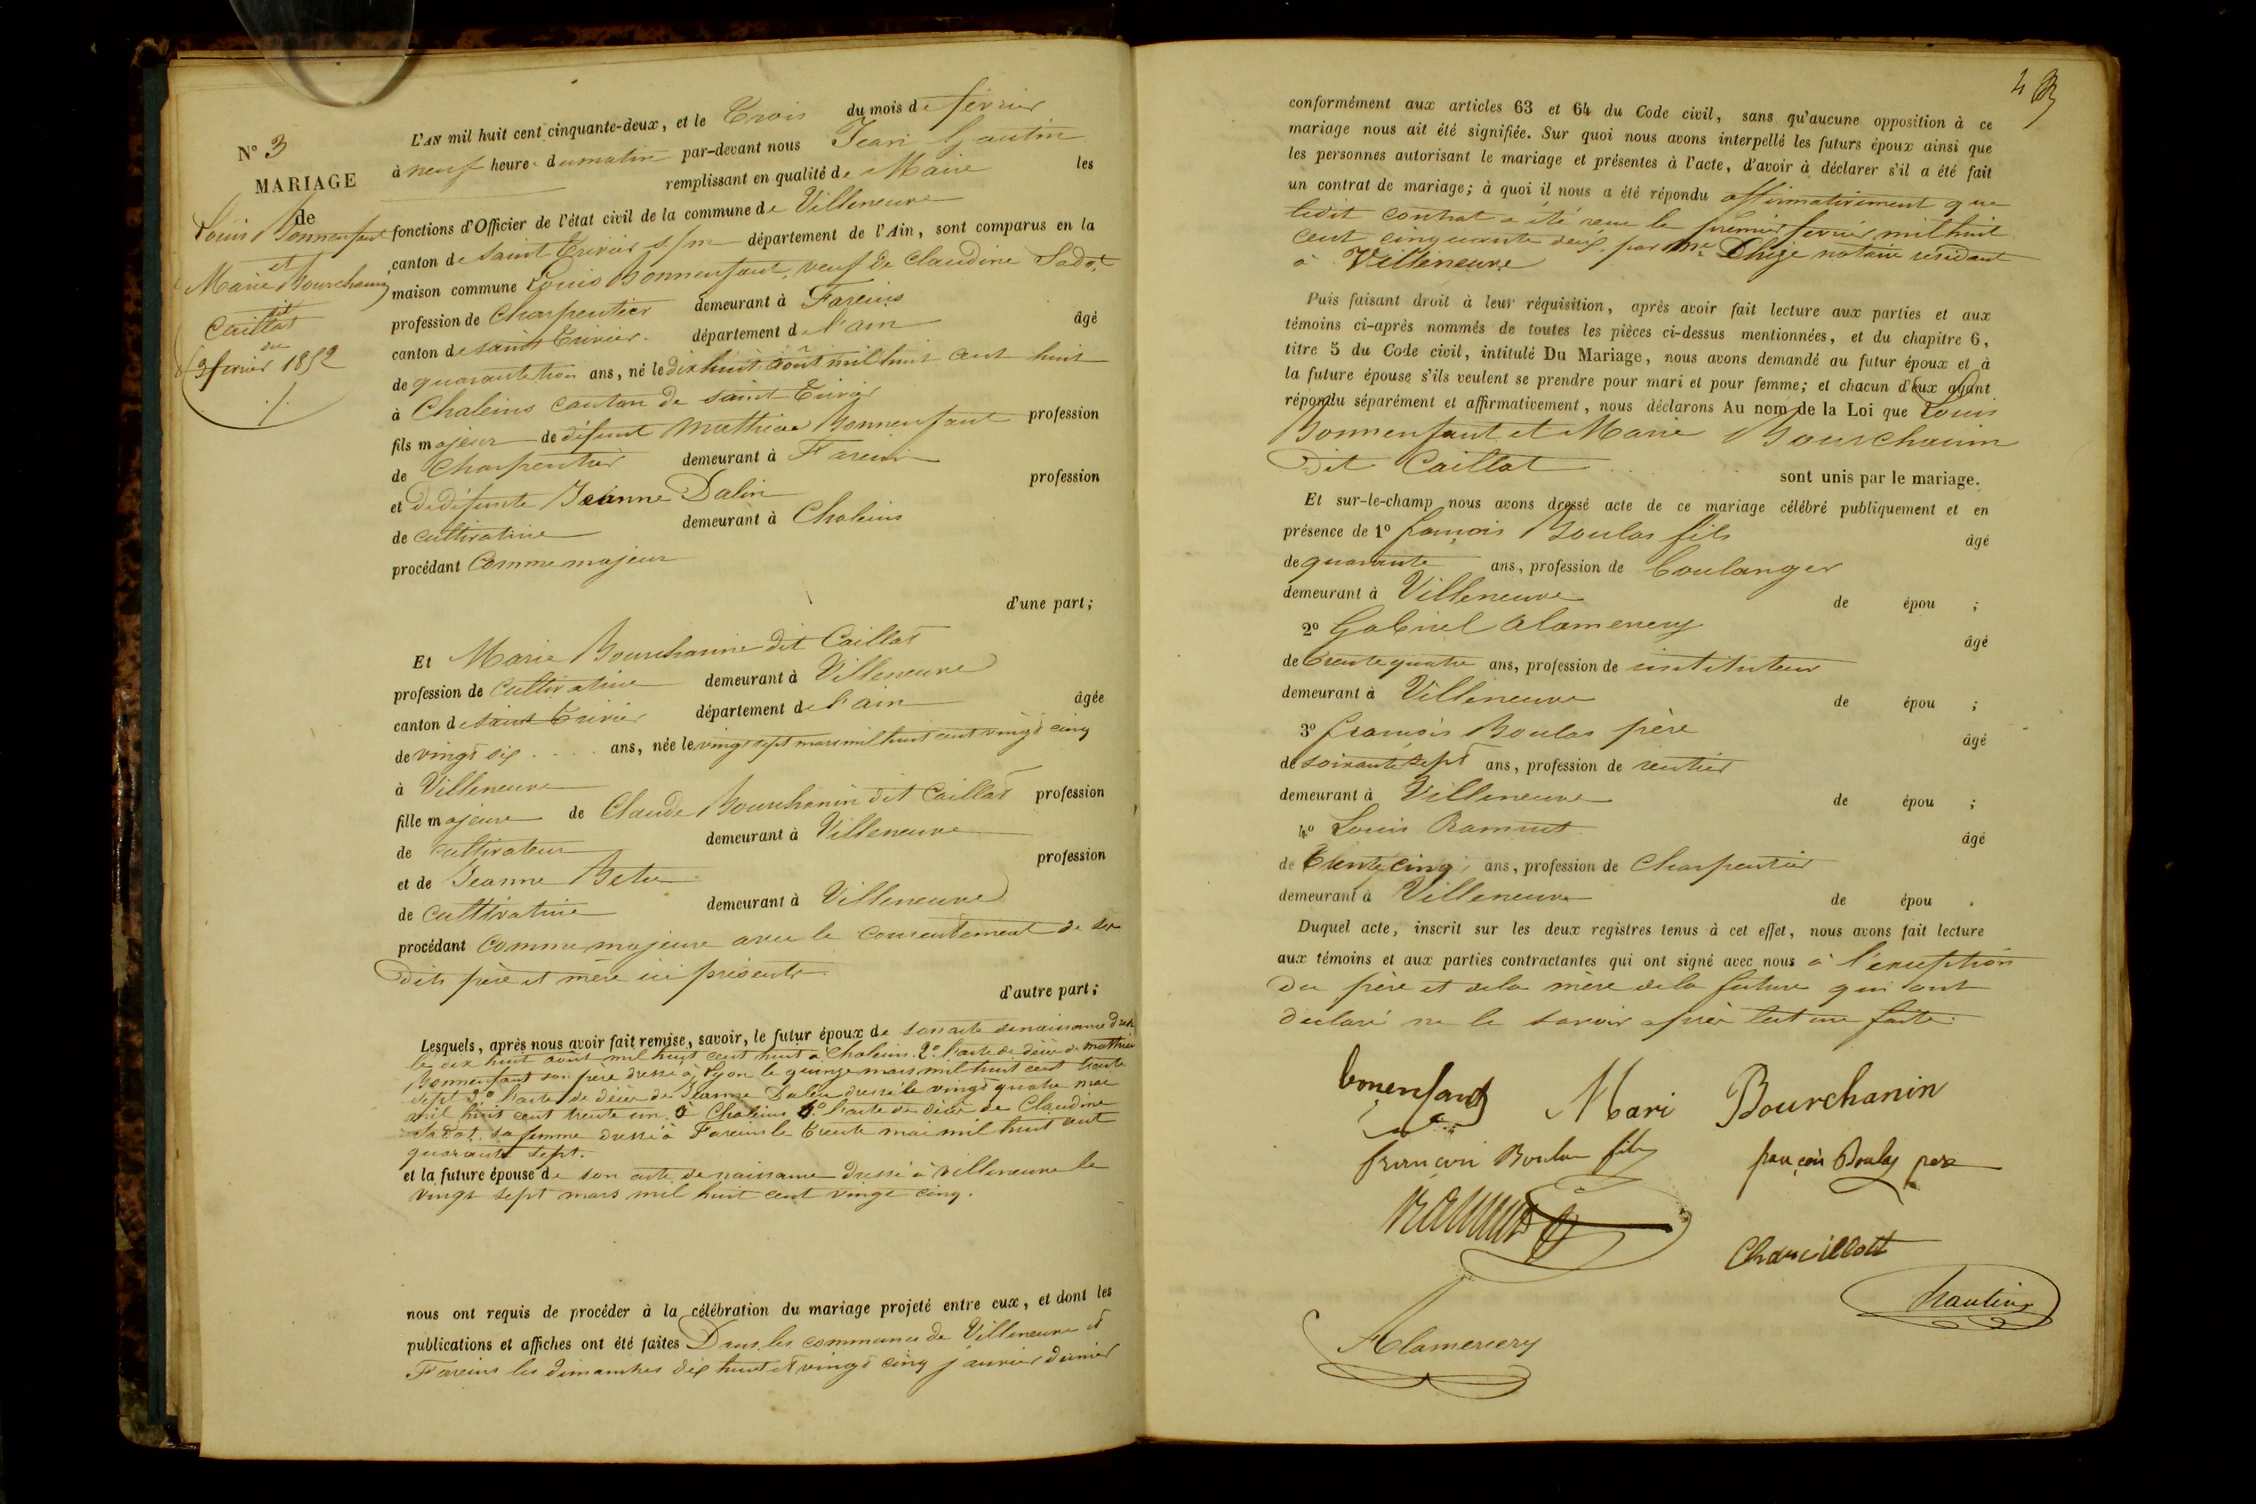 N° 3
MARIAGE
de
Louis Bonnenfant
et
Marie Bourchanin
dit
Caillat
du
3 fevrier 1852
L'AN mil huit cent cinquante-deux, et le Trois du mois de fevrier
à neuf heures du matin par-devant nous Jean Gautin
remplissant en qualité de Maire les
fonctions d'Officier de l'état civil de la commune de Villeneuve
canton de Saint Trivier s/m département de l'Ain, sont comparus en la
maison commune Louis Bonnenfant, veuf de Claudine Sadot
profession de Charpentier demeurant à Fareins
canton de saint Trivier département de l'ain âgé
de quarante trois ans, né le dix huit août mil huit cent huit
à Chaleins canton de saint Trivier
fils majeur de défunt Mathieu Bonnenfant profession
de Charpentier demeurant à Fareins
et de défunte Jeanne Dalin profession
de cultivatrice demeurant à Chaleins
procédant Comme majeur
d'une part;
Et Marie Bourchanin dit Caillat
profession de cultivatrice demeurant à Villeneuve
canton de saint Trivier département de l'ain âgée
de vingt six ans, née le vingt sept mars mil huit cent vingt cinq
à Villeneuve
fille majeure de Claude Bourchanin dit Caillat profession
de cultivateur demeurant à Villeneuve
et de Jeanne profession
de cultivatrice demeurant à Villeneuve
procédant comme majeure avec le consentement de ses
dits père et mère ici présents
d'autre part;
Lesquels, après nous avoir fait remise, savoir, le futur époux de son acte de naissance dressé
le dix huit août mil huit cent huit à Chaleins. 2° l'acte de décès de Mathieu
Bonnenfant son père dressé à Lyon le quinze mars mil huit cent trente
sept 3° l'acte de décès de Jeanne Dalin dressé le vingt quatre mai
mil huit cent trente un à Chaleins 4° l'acte de décès de Claudine
Sadot sa femme dressé à Fareins le trente mai mil huit cent
quarante sept.
et la future épouse de son acte de naissance dressé à Villeneuve le
vingt sept mars mil huit cent vingt cinq.
nous ont requis de procéder à la célébration du mariage projeté entre eux, et dont les
publications et affiches ont été faites Dans les communes de Villeneuve et
Fareins les dimanches dix huit et vingt cinq janvier dernier
conformément aux articles 63 et 64 du Code civil, sans qu'aucune opposition à ce
mariage nous ait été signifiée. Sur quoi nous avons interpellé les futurs époux ainsi que
les personnes autorisant le mariage et présentes à l'acte, d'avoir à déclarer s'il a été fait
un contrat de mariage; à quoi il nous a été répondu affirmativement que
ledit contrat a été reçu le premier fevrier mil huit
cent cinquante deux par Me notaire résidant
à Villeneuve
Puis faisant droit à leur réquisition, après avoir fait lecture aux parties et aux
témoins ci-après nommés de toutes les pièces ci-dessus mentionnées, et du chapitre 6,
titre 5 du Code civil, intitulé Du Mariage, nous avons demandé au futur époux et à
la future épouse s'ils veulent se prendre pour mari et pour femme; et chacun d'eux ayant
répondu séparément et affirmativement, nous déclarons Au nom de la Loi que Louis
Bonnenfant et Marie Bourchanin
Dit Caillat
sont unis par le mariage.
Et sur-le-champ nous avons dressé acte de ce mariage célébré publiquement et en
présence de 1° françois Boulas fils âgé
de quarante ans, profession de boulanger
demeurant à Villeneuve de épou ;
2° Gabriel Alamercery âgé
de Trente quatre ans, profession de instituteur
demeurant à Villeneuve de épou ;
3° françois Boulas père âgé
de soixante sept ans, profession de rentier
demeurant à Villeneuve de épou ;
4° Louis Ramuet âgé
de Trente cinq ans, profession de Charpentier
demeurant à Villeneuve de épou .
Duquel acte, inscrit sur les deux registres tenus à cet effet, nous avons fait lecture
aux témoins et aux parties contractantes qui ont signé avec nous à l'exception
du père et de la mère de la future qui ont
déclaré ne le savoir après lecture faite.
bonenfant Mari Bourchanin
françois Boulas fils françois Boulas pere
Alamercery